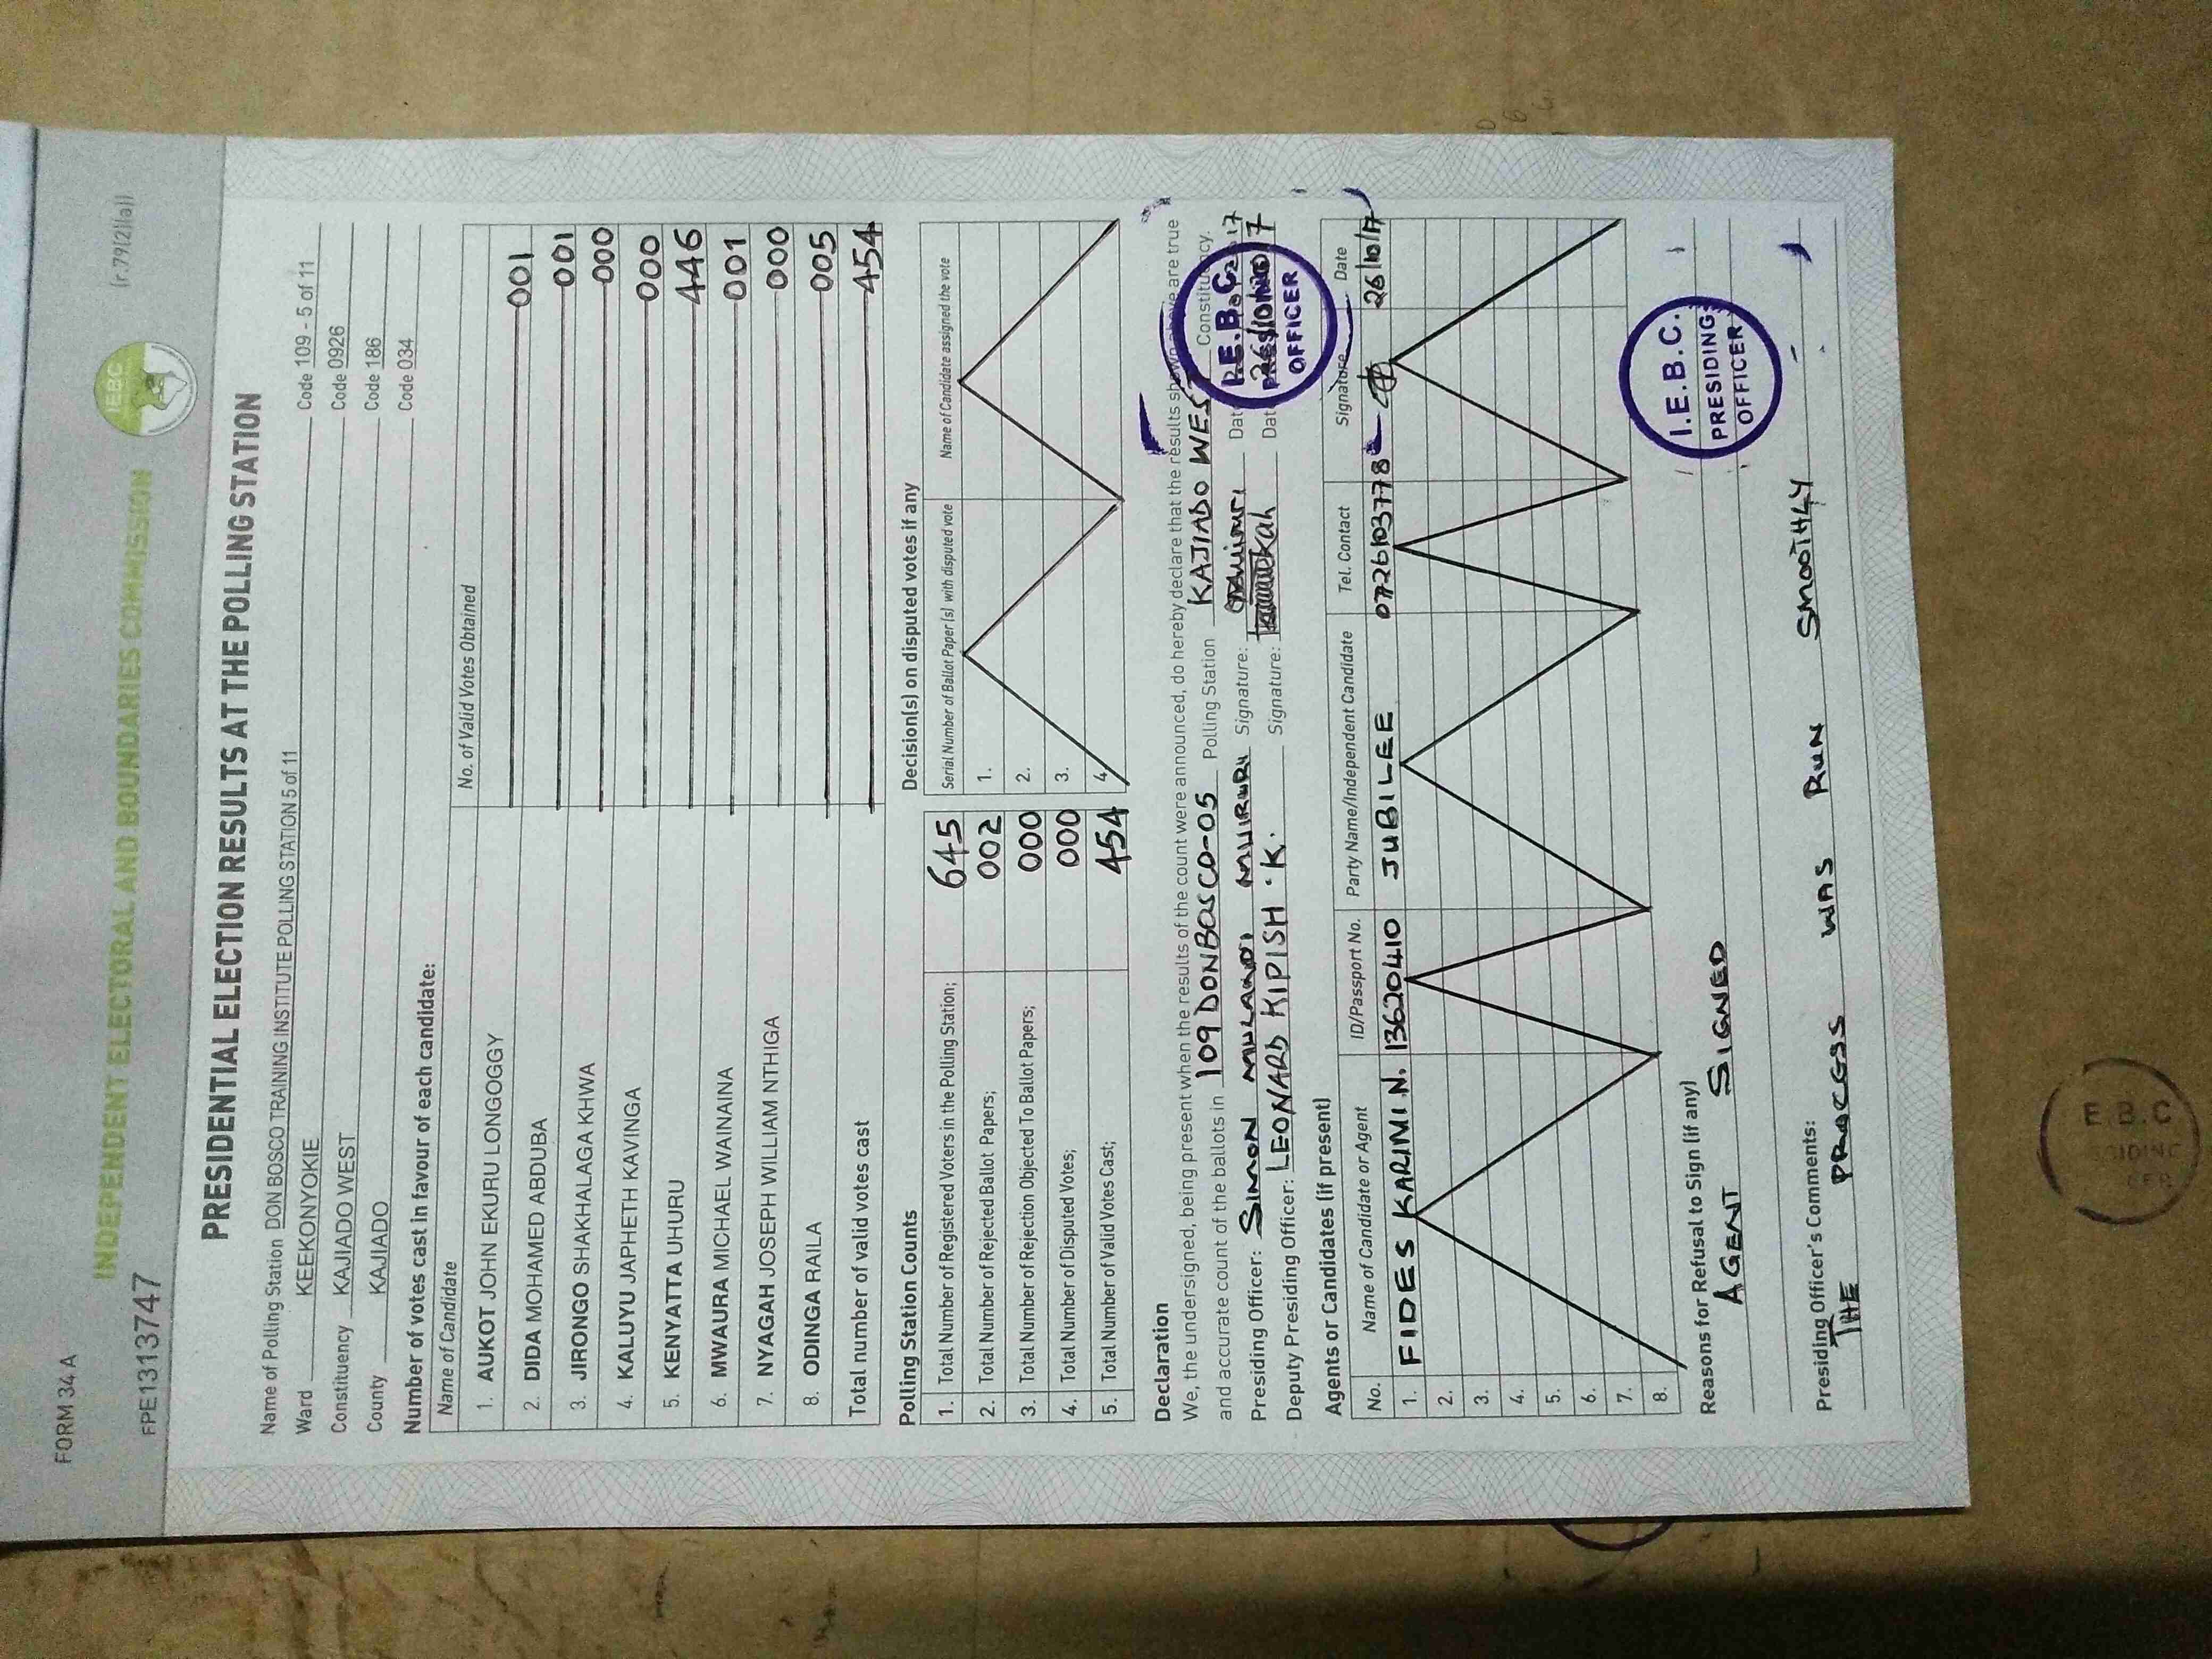 FORM 34A
(r.79(2)(a))
INDEPENDENT ELECTORAL AND BOUNDARIES COMMISSION
IEBC
FPE1313747
PRESIDENTIAL ELECTION RESULTS AT THE POLLING STATION
Name of Polling Station DON BOSCO TRAINING INSTITUTE POLLING STATION 5 of 11 Code 109 - 5 of 11
Ward KEEKONYOKIE Code 0926
Constituency KAJIADO WEST Code 186
County KAJIADO Code 034
Number of votes cast in favour of each candidate:
Name of Candidate No. of Valid Votes Obtained
1. AUKOT JOHN EKURU LONGOGGY 001
2. DIDA MOHAMED ABDUBA 001
3. JIRONGO SHAKHALAGA KHWA 000
4. KALUYU JAPHETH KAVINGA 000
5. KENYATTA UHURU 446
6. MWAURA MICHAEL WAINAINA 001
7. NYAGAH JOSEPH WILLIAM NTHIGA 000
8. ODINGA RAILA 005
Total number of valid votes cast 454
Polling Station Counts
1. Total Number of Registered Voters in the Polling Station; 645
2. Total Number of Rejected Ballot Papers; 002
3. Total Number of Rejection Objected To Ballot Papers; 000
4. Total Number of Disputed Votes; 000
5. Total Number of Valid Votes Cast; 454
Decision(s) on disputed votes if any
Serial Number of Ballot Paper(s) with disputed vote Name of Candidate assigned the vote
1.
2.
3.
4.
Declaration
We, the undersigned, being present when the results of the count were announced, do hereby declare that the results shown above are true
and accurate count of the ballots in 109 DONBOSCO-05 Polling Station KAJIADO WEST Constituency.
Presiding Officer: SIMON MULANDI MUIRURI Signature: Date
Deputy Presiding Officer: LEONARD KIPISH .K. Signature: Date
I.E.B.C.
PRESIDING
OFFICER
Agents or Candidates (if present)
No. Name of Candidate or Agent ID/Passport No. Party Name/Independent Candidate Tel. Contact Signature Date
1. FIDES KARIMI N. 13620410 JUBILEE 0726103778 26/10/17
2.
3.
4.
5.
6.
7.
8.
Reasons for Refusal to Sign (if any)
AGENT SIGNED
I.E.B.C.
PRESIDING
OFFICER
Presiding Officer's Comments:
THE PROCESS WAS RUN SMOOTHLY
E.B.C